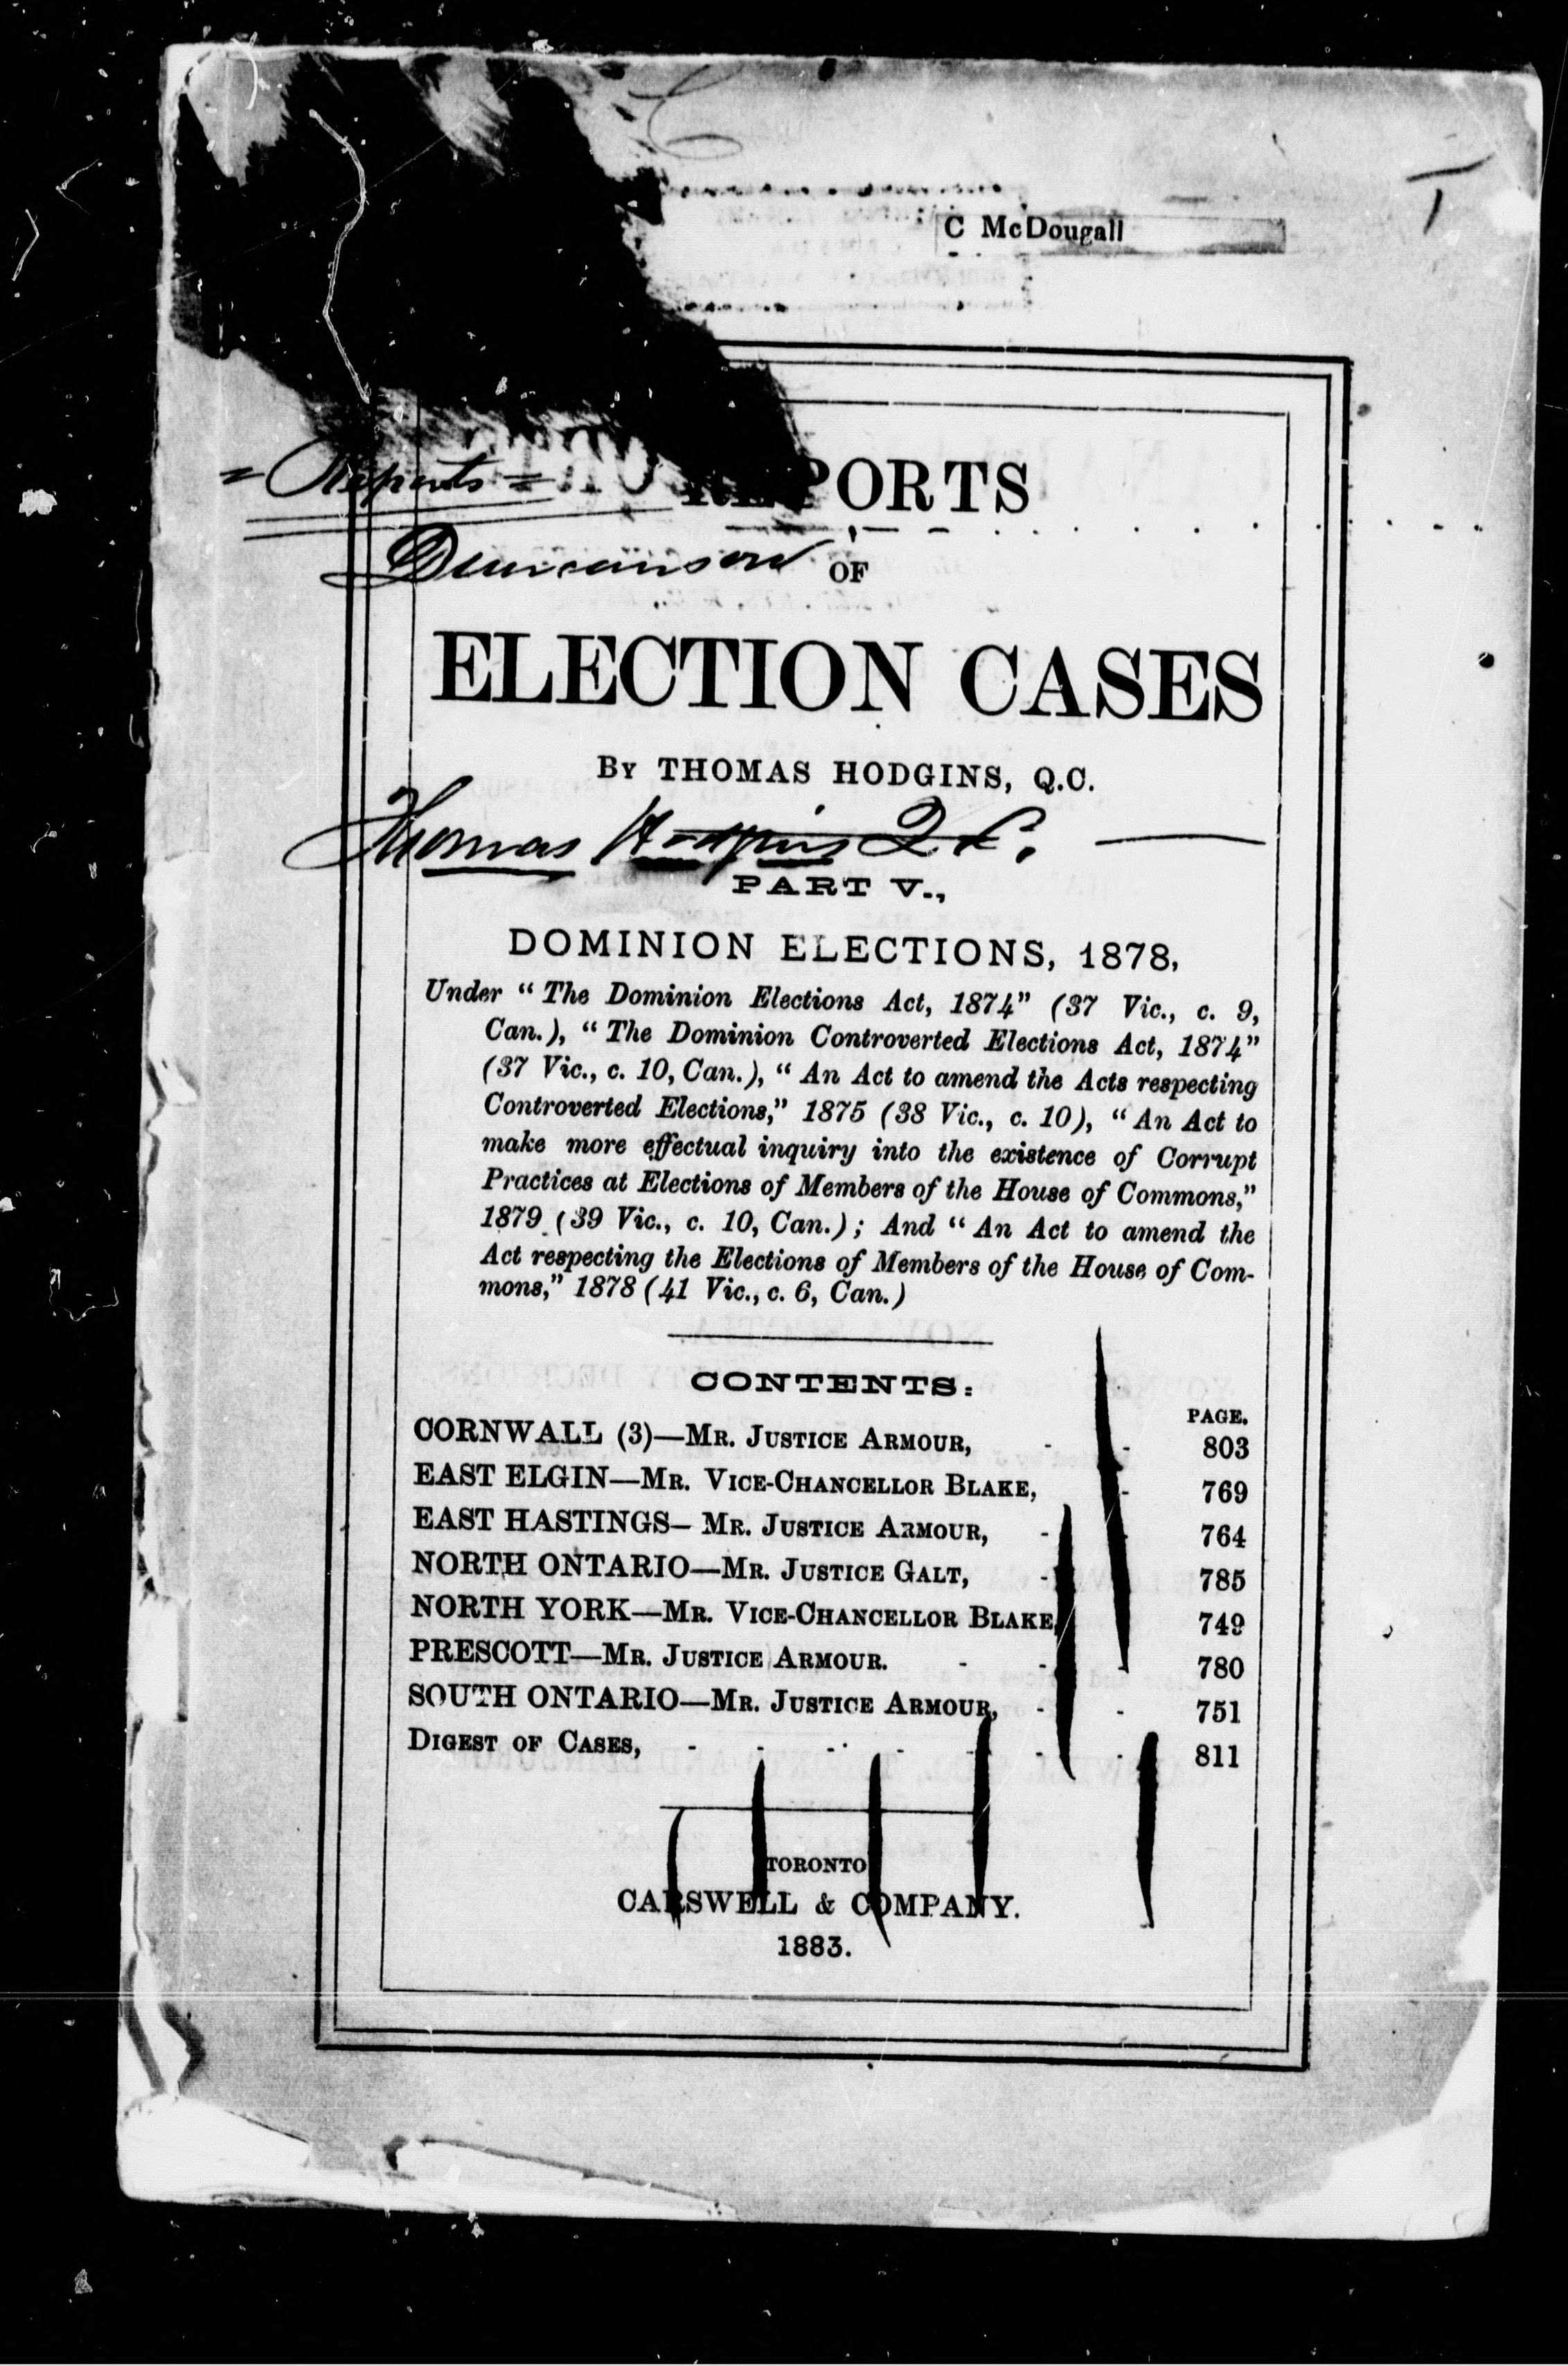 C McDougall
T
REPORTS
= Reports =
Duncanson
OF
ELECTION CASES
BY THOMAS HODGINS, Q.C.
Thomas Hodgins Q C. —
PART V.,
DOMINION ELECTIONS, 1878,
Under “ The Dominion Elections Act, 1874” (37 Vic., c. 9,
Can.), “ The Dominion Controverted Elections Act, 1874”
(37 Vic., c. 10, Can.), “ An Act to amend the Acts respecting
Controverted Elections,” 1875 (38 Vic., c. 10), “ An Act to
make more effectual inquiry into the existence of Corrupt
Practices at Elections of Members of the House of Commons,”
1879 (39 Vic., c. 10, Can.) ; And “ An Act to amend the
Act respecting the Elections of Members of the House of Com-
mons,” 1878 (41 Vic., c. 6, Can.)
CONTENTS:
PAGE.
CORNWALL (3)—MR. JUSTICE ARMOUR, - - 803
EAST ELGIN—MR. VICE-CHANCELLOR BLAKE, - 769
EAST HASTINGS– MR. JUSTICE ARMOUR, - 764
NORTH ONTARIO—MR. JUSTICE GALT, - 785
NORTH YORK—MR. VICE-CHANCELLOR BLAKE, 749
PRESCOTT—MR. JUSTICE ARMOUR. - - - 780
SOUTH ONTARIO—MR. JUSTICE ARMOUR, - - 751
DIGEST OF CASES, - - - - - - - 811
TORONTO
CARSWELL & COMPANY.
1883.